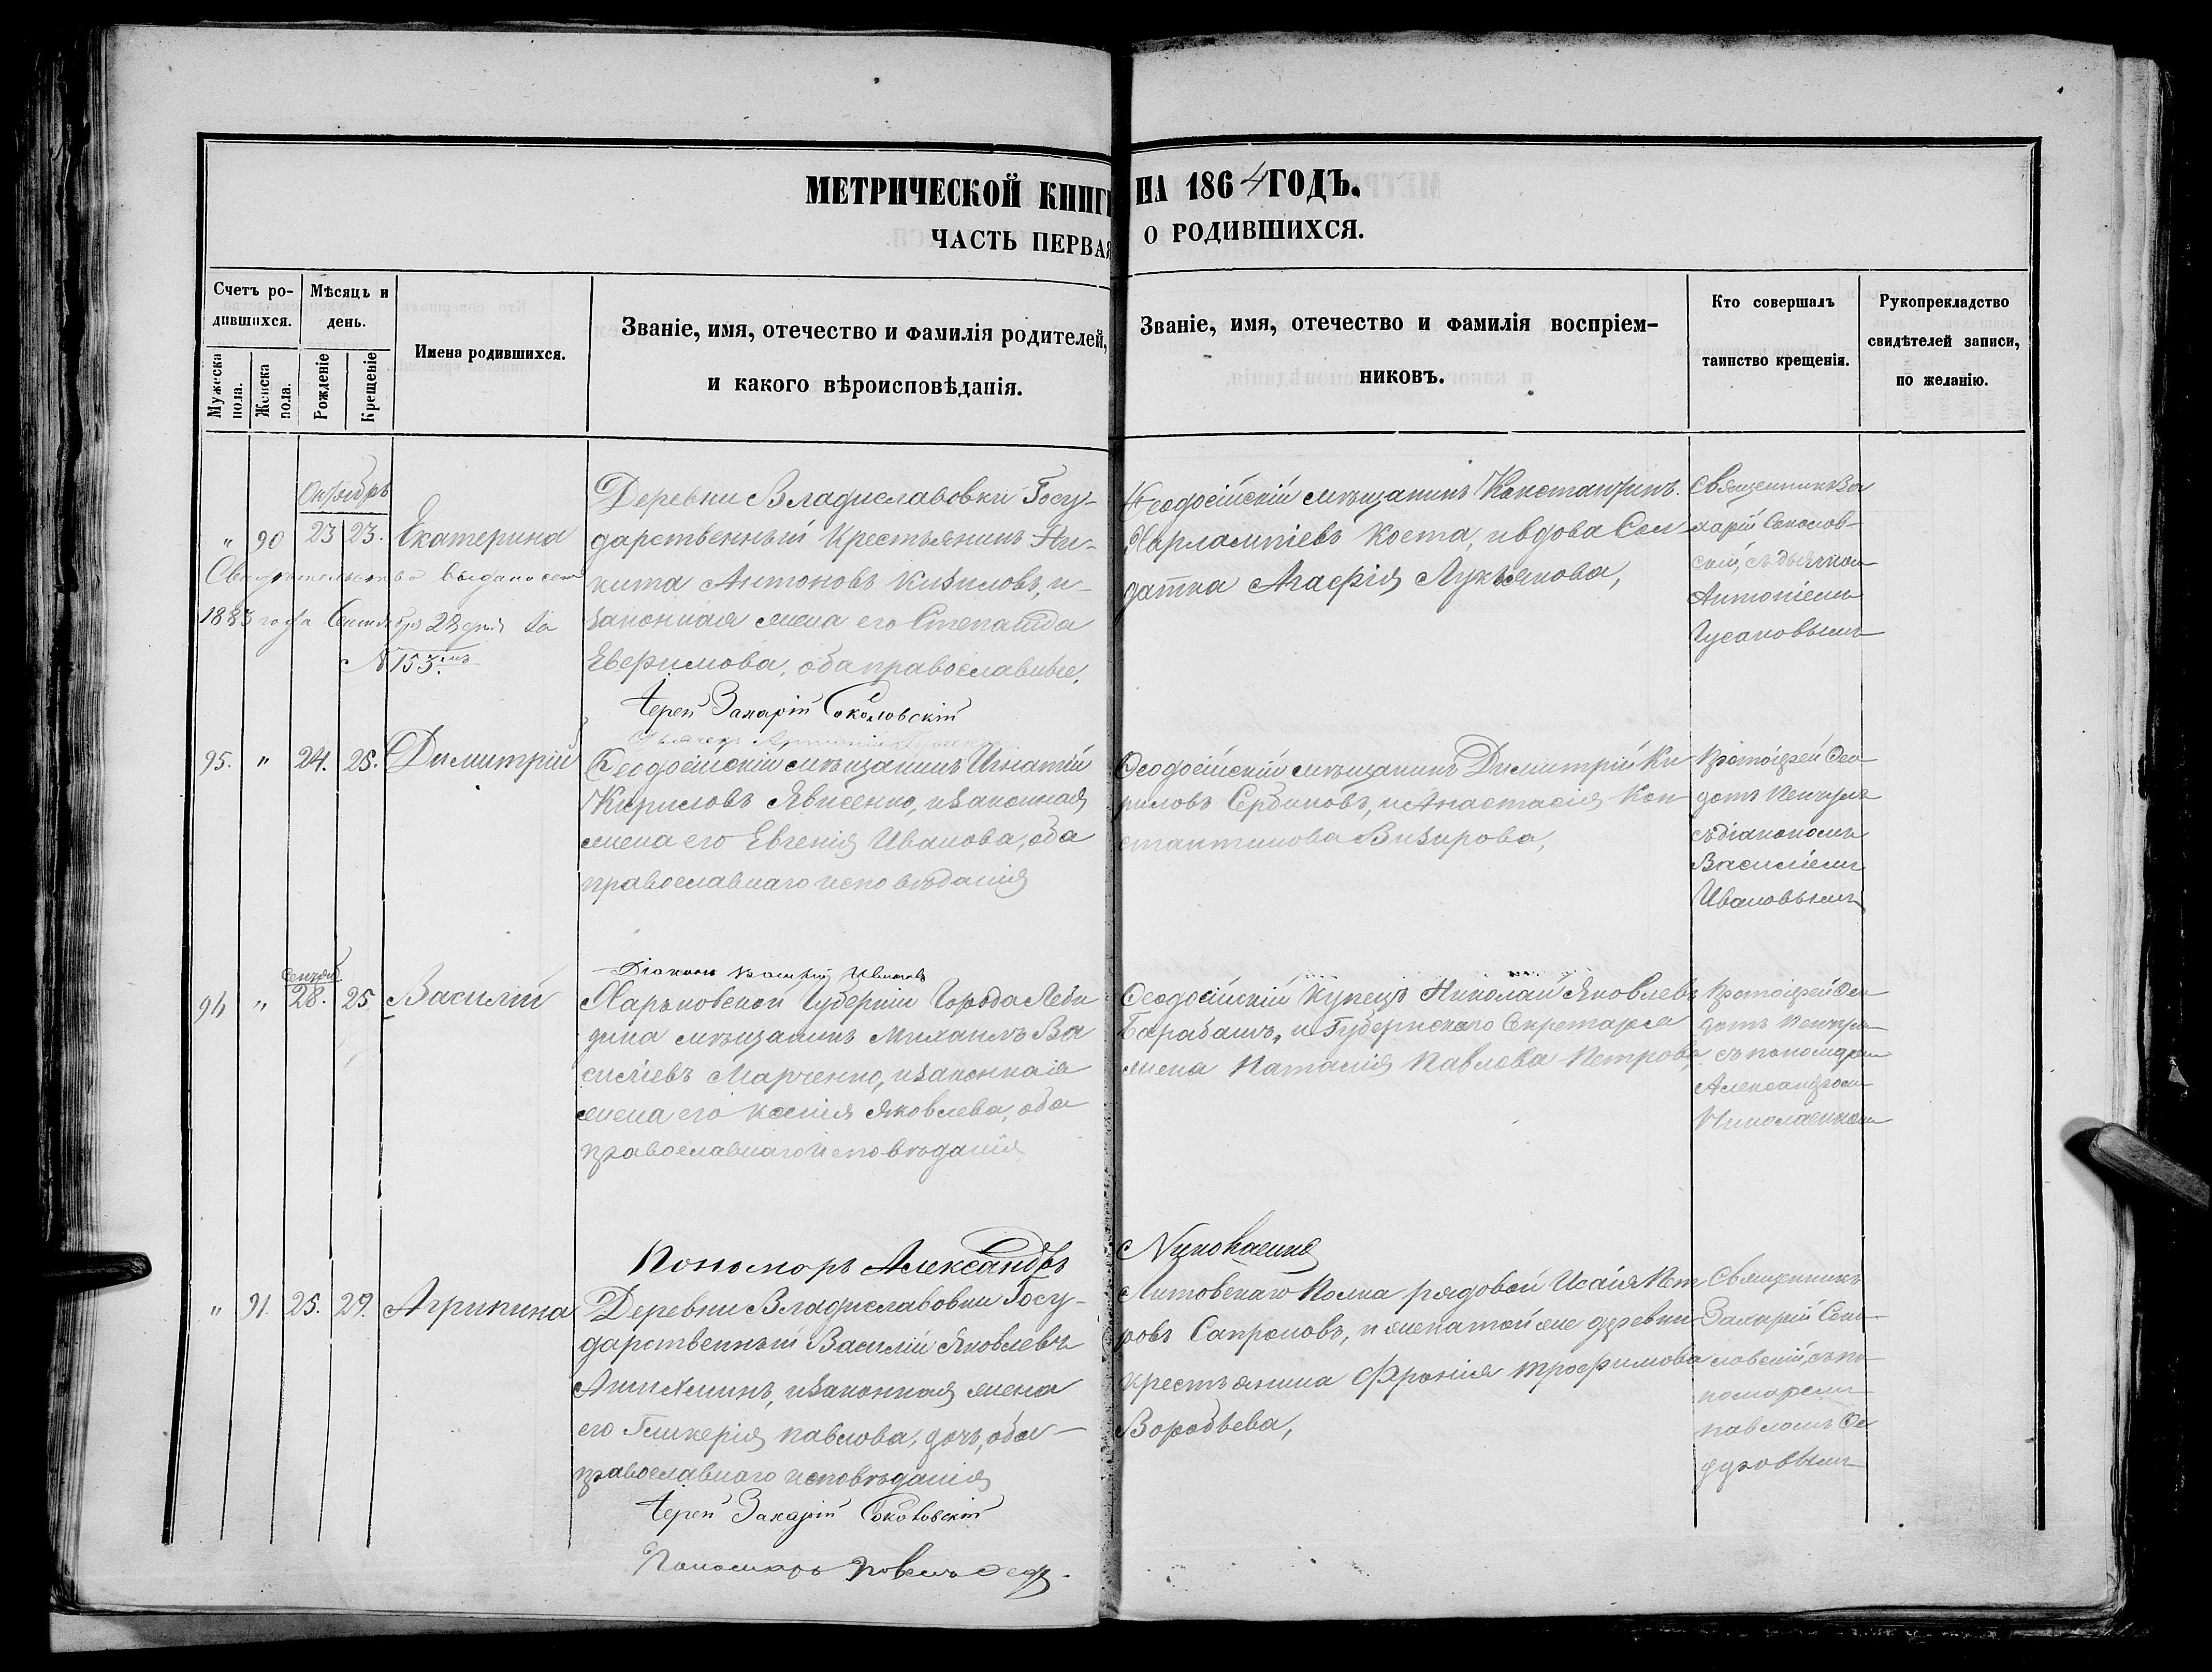 МЕТРИЧЕСКОЙ КНИГИ НА 1864 ГОДЪ.
ЧАСТЬ ПЕРВАЯ О РОДИВШИХСЯ.
Счетъ ро-
дившихся.
Мужеска
пола.
Женска
пола.
Мѣсяцъ и
день.
Рожденіе
Крещеніе
Имена родившихся.
Званіе, имя, отечество и фамилія родителей,
и какого вѣроисповѣданія.
Званіе, имя, отечество и фамилія воспріем-
никовъ.
Кто совершалъ
таинство крещенія.
Рукоприкладство
свидѣтелей записи,
по желанію.
Октябрь
" 90 23 23. Екатерина
Свидѣтельство выдано
1883 года Сентября 28 дня за
№ 153.мъ
Деревни Владиславовки Госу-
дарственный Крестьянинъ Ни-
кита Антоновъ Кизиловъ, и
законная жена его Степанида
Евфимова, оба православные,
Іерей Захарій Соколовскій
Ѳеодосійскій мѣщанинъ Константинъ
Харлампіевъ Коста, и вдова Сол-
датка Агафія Лукьянова,
Священникъ За
харій Соколов-
скій, съ дьячкомъ
Антоніемъ
Гусаковымъ
95. " 24. 25. Димитрій
Ѳеодосійскій мѣщанинъ Игнатій
Кириловъ Явисенко, и законная
жена его Евгенія Иванова, оба
православнаго исповѣданія
Діаконъ Василій Ивановъ
Ѳеодосійскій мѣщанинъ Димитрій Ки
риловъ Сербиновъ, и Анастасія Кон
стантинова Визирова,
Протоіерей Ѳео
дотъ
съ діакономъ
Василіемъ
Ивановымъ
Сентяб.
28. 25 Василій
Харьковской Губерніи Города Лебе
дина мѣщанинъ Михаилъ Ва
силіевъ Марченко, и законная
жена его Ксенія Яковлева, оба
православнаго исповѣданія
Пономарь Александръ Николаенко
Ѳеодосійскій Купецъ Николай Яковлевъ
Барабашъ, и Губернскаго Секретаря
жена Наталія Павлова Петрова,
Протоіерей Ѳео
дотъ
съ пономаремъ
Александромъ
Николаенкомъ
" 91. 25. 29. Агрипина
Деревни Владиславовки Госу-
дарственный Василій Яковлевъ
Анихминъ, и законная жена
его Гликерія Павлова, дочь, оба
православнаго исповѣданія
Іерей Захарій Соколовскій
Пономарь Павелъ
Литовскаго Полка рядовой Исаія Пет
ровъ Сапроновъ, и женатой же деревни
крестьянина Фронія Трофимова
Воробьева,
Священникъ
Захарій Соко-
ловскій, съ по-
номаремъ
Павломъ Ѳе
доровымъ